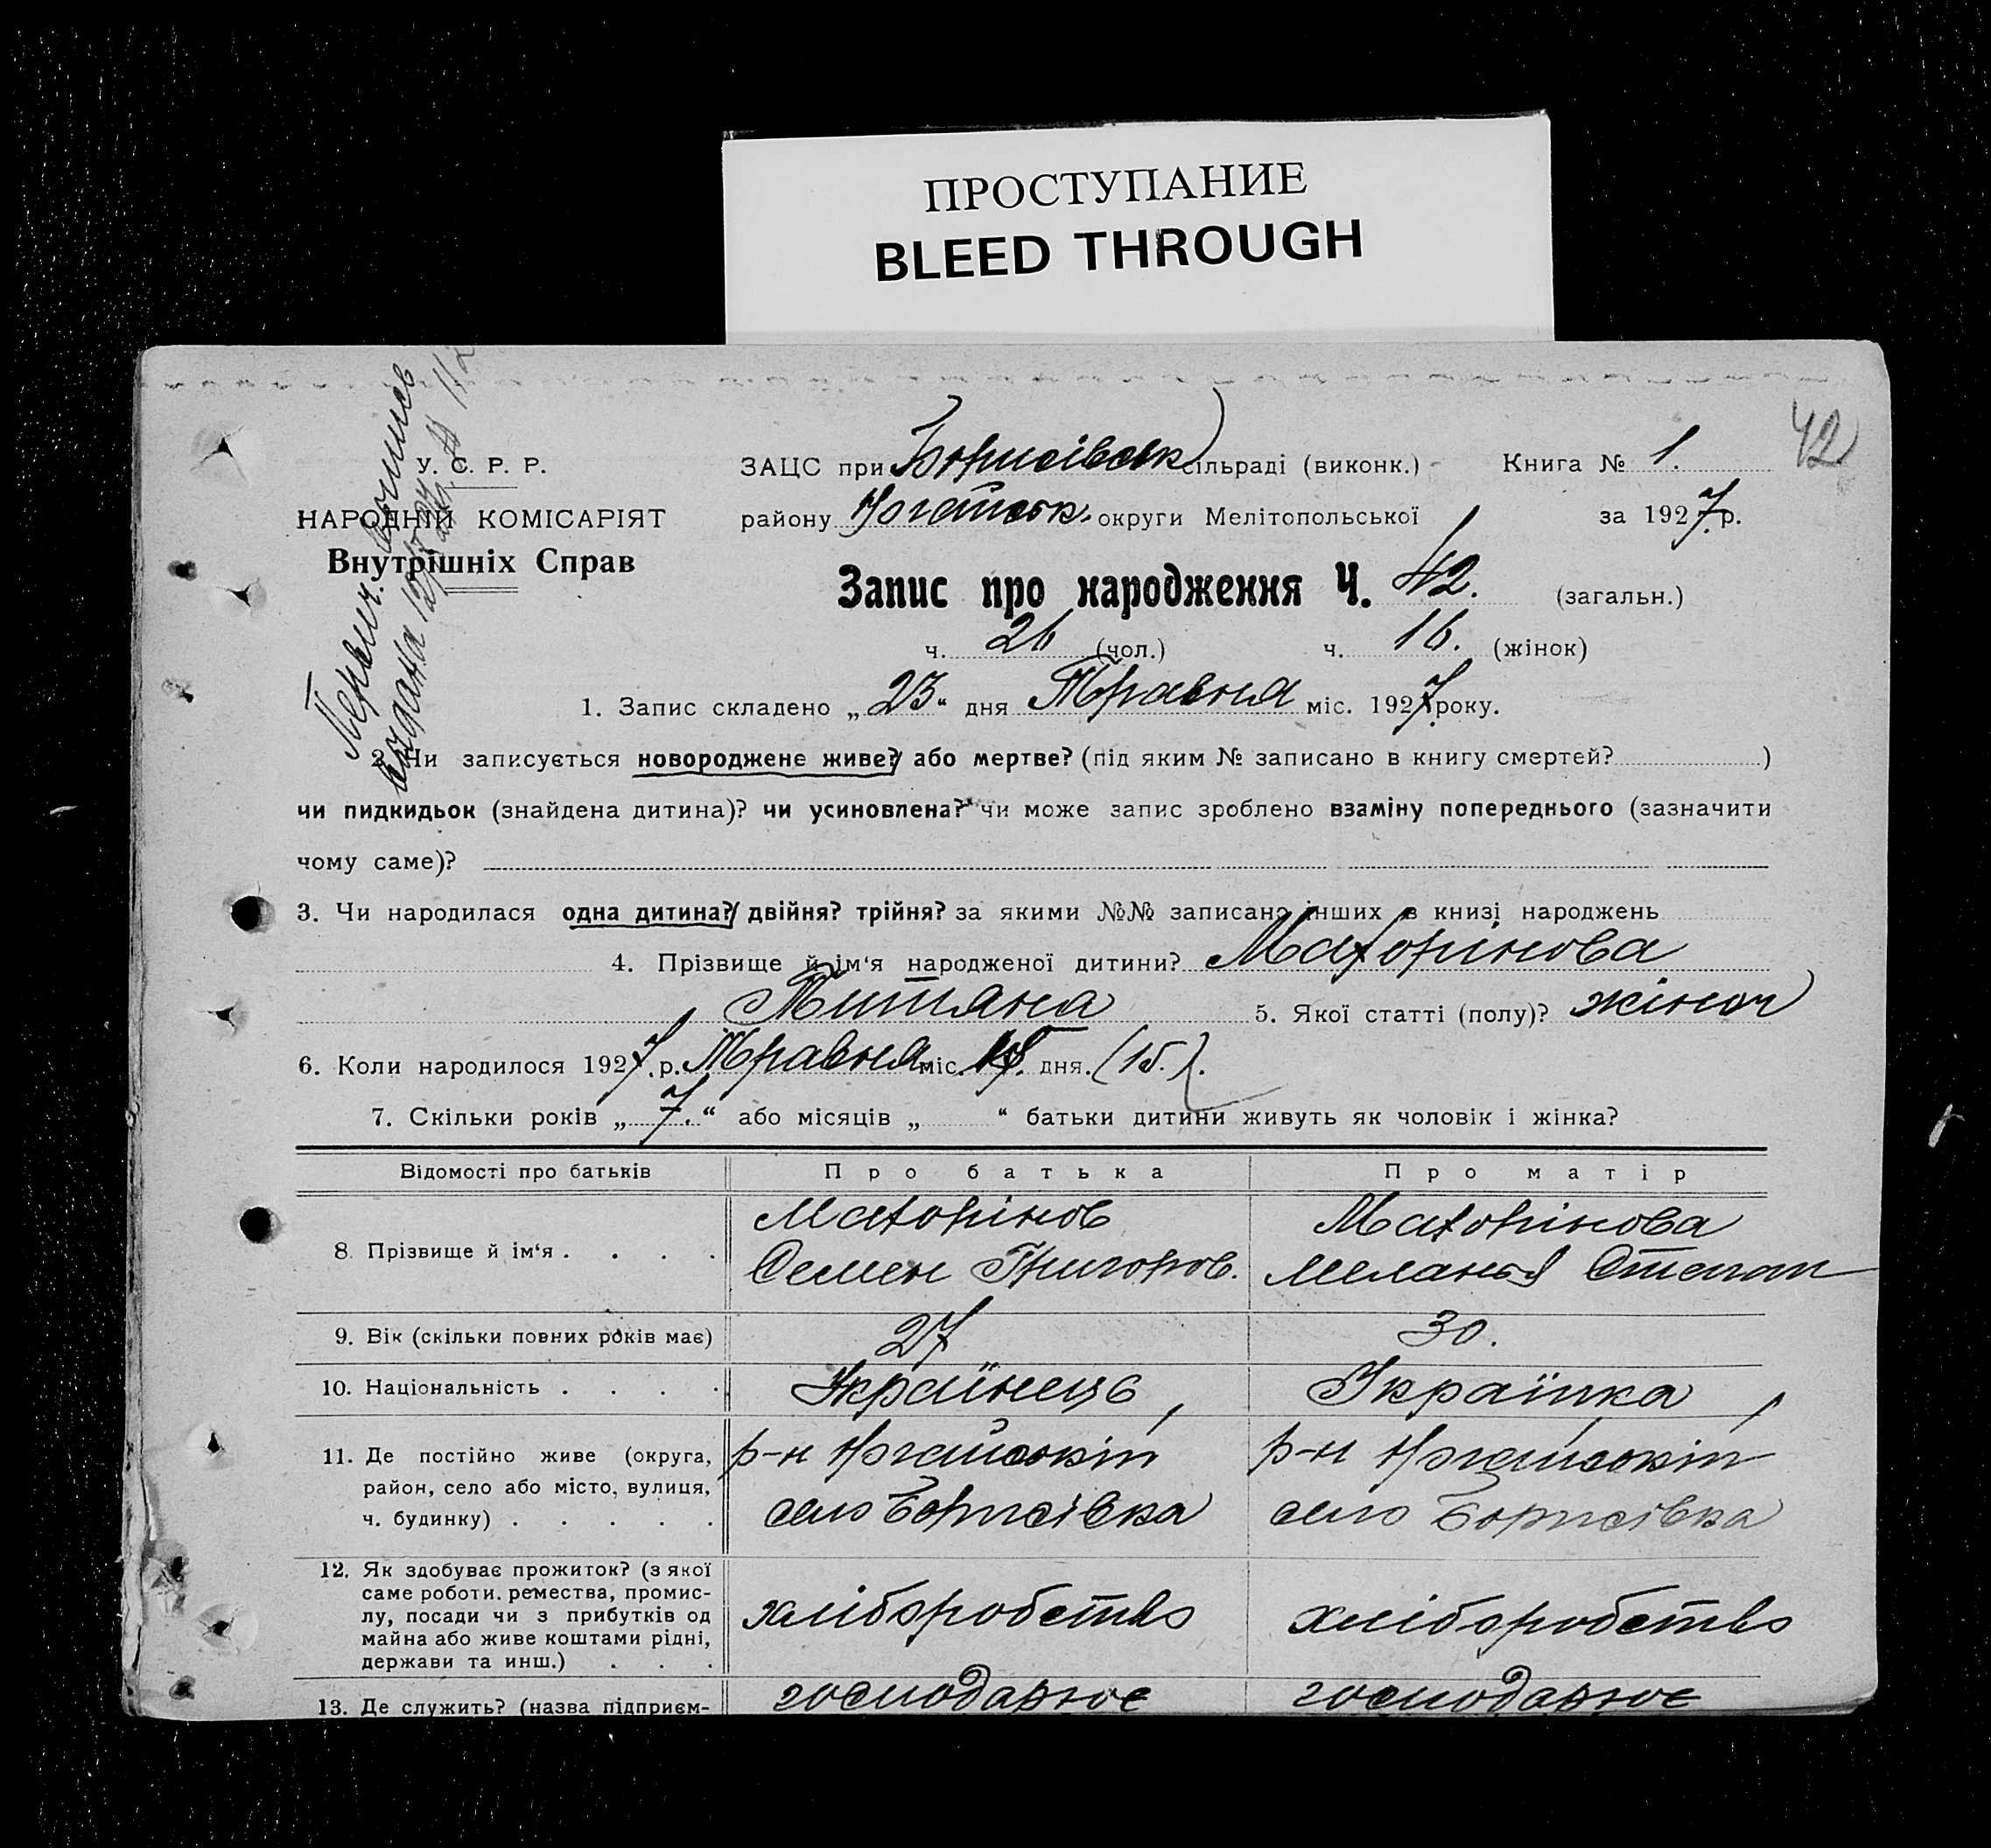 ПРОСТУПАНИЕ
BLEED THROUGH
42
У. С. Р. Р.
НАРОДНІЙ КОМІСАРІЯТ
Внутрішніх Справ
ЗАЦС при Борисівськ сільраді (виконк.) Книга № 1.
району Ногайськ. округи Мелітопольської за 1927 р.
Запис про народження Ч. 42. (загальн.)
ч. 26 (чол.) ч. 16. (жінок)
1. Запис складено „23“ дня Травня міс. 1927 року.
2. Чи записується новороджене живе? або мертве? (під яким № записано в книгу смертей? )
чи пидкидьок (знайдена дитина)? чи усиновлена? чи може запис зроблено взаміну попереднього (зазначити
чому саме)?
3. Чи народилася одна дитина? двійня? трійня? за якими №№ записано інших в книзі народжень
4. Прізвище й ім‘я народженої дитини? Махорінова
Титяна 5. Якої статті (полу)? жіноч
6. Коли народилося 1927 р. Травня міс. дня. (15.).
7. Скільки років „7.“ або місяців „ “ батьки дитини живуть як чоловік і жінка?
Відомості про батьків Про батька Про матір
8. Прізвище й ім‘я . . . . Махорінов Махорінова
Семен Григоров. Меланья Степан
9. Вік (скільки повних років має) 27 30.
10. Національність . . . . Українець Українка
11. Де постійно живе (округа, р-н р-н
район, село або місто, вулиця, село Борисівка село Борисівка
ч. будинку) . . . . .
12. Як здобуває прожиток? (з якої
саме роботи, ремества, промис-
лу, посади чи з прибутків од хліборобство хліборобство
майна або живе коштами рідні,
держави та инш.) . . .
13. Де служить? (назва підприєм- господарює господарює